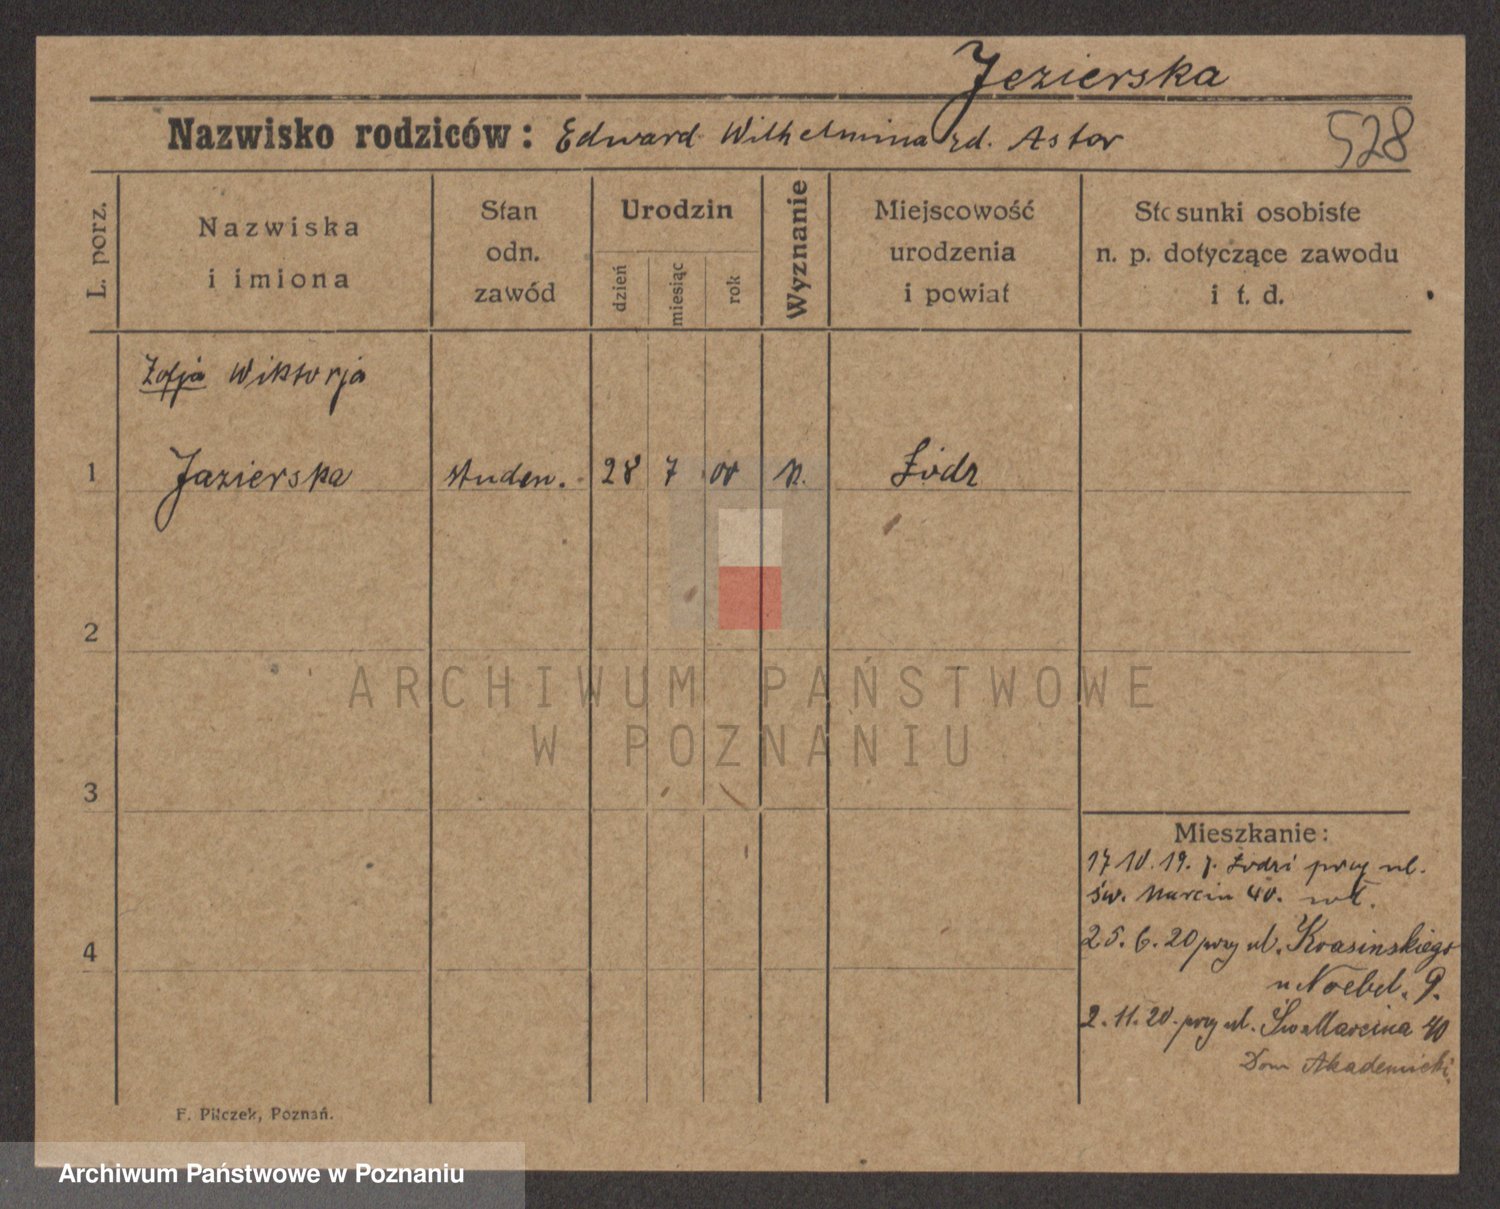 Jezierska
Nazwisko rodziców: Edward Wilhelmina zd. Astor
528
L. porz.
Nazwiska
i imiona
Stan
odn.
zawód
Urodzin
dzień
miesiąc
rok
Wyznanie
Miejscowość
urodzenia
i powiat
Stosunki osobiste
n. p. dotyczące zawodu
i t. d.
Zofja Wiktorja
1 Jazierska studen. 28 7 00 Łódz
2
3
4
ARCHIWUM PAŃSTWOWE
W POZNANIU
Mieszkanie:
17 10. 19. z. Łodzi przy ul.
św. Marcin 40.
25. 6. 20 przy ul. Krasinskiego
u Noebel. 9.
2. 11. 20. przy ul. Św. Marcina 40
Dom Akademicki.
F. Pilczek, Poznań.
Archiwum Państwowe w Poznaniu